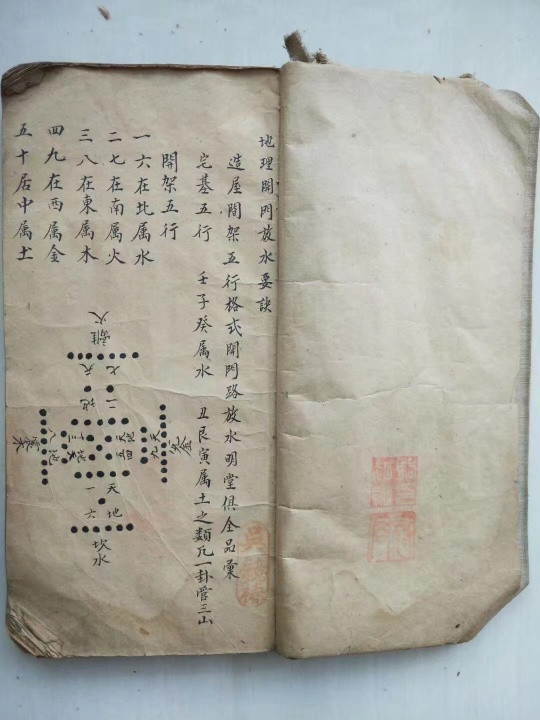 地理開門放水要訣
造屋間架五行格式開門路放水明堂俱全品彙
宅基五行 壬子癸属水 丑艮寅属土之類凡一卦管三山
間架五行
一六在北属水
二七在南属火
三八在東属木
四九在西属金
五十居中属土
離火
七
地
二
天
九
天
四
地
五
三
八
地
一
天
六
地
坎水